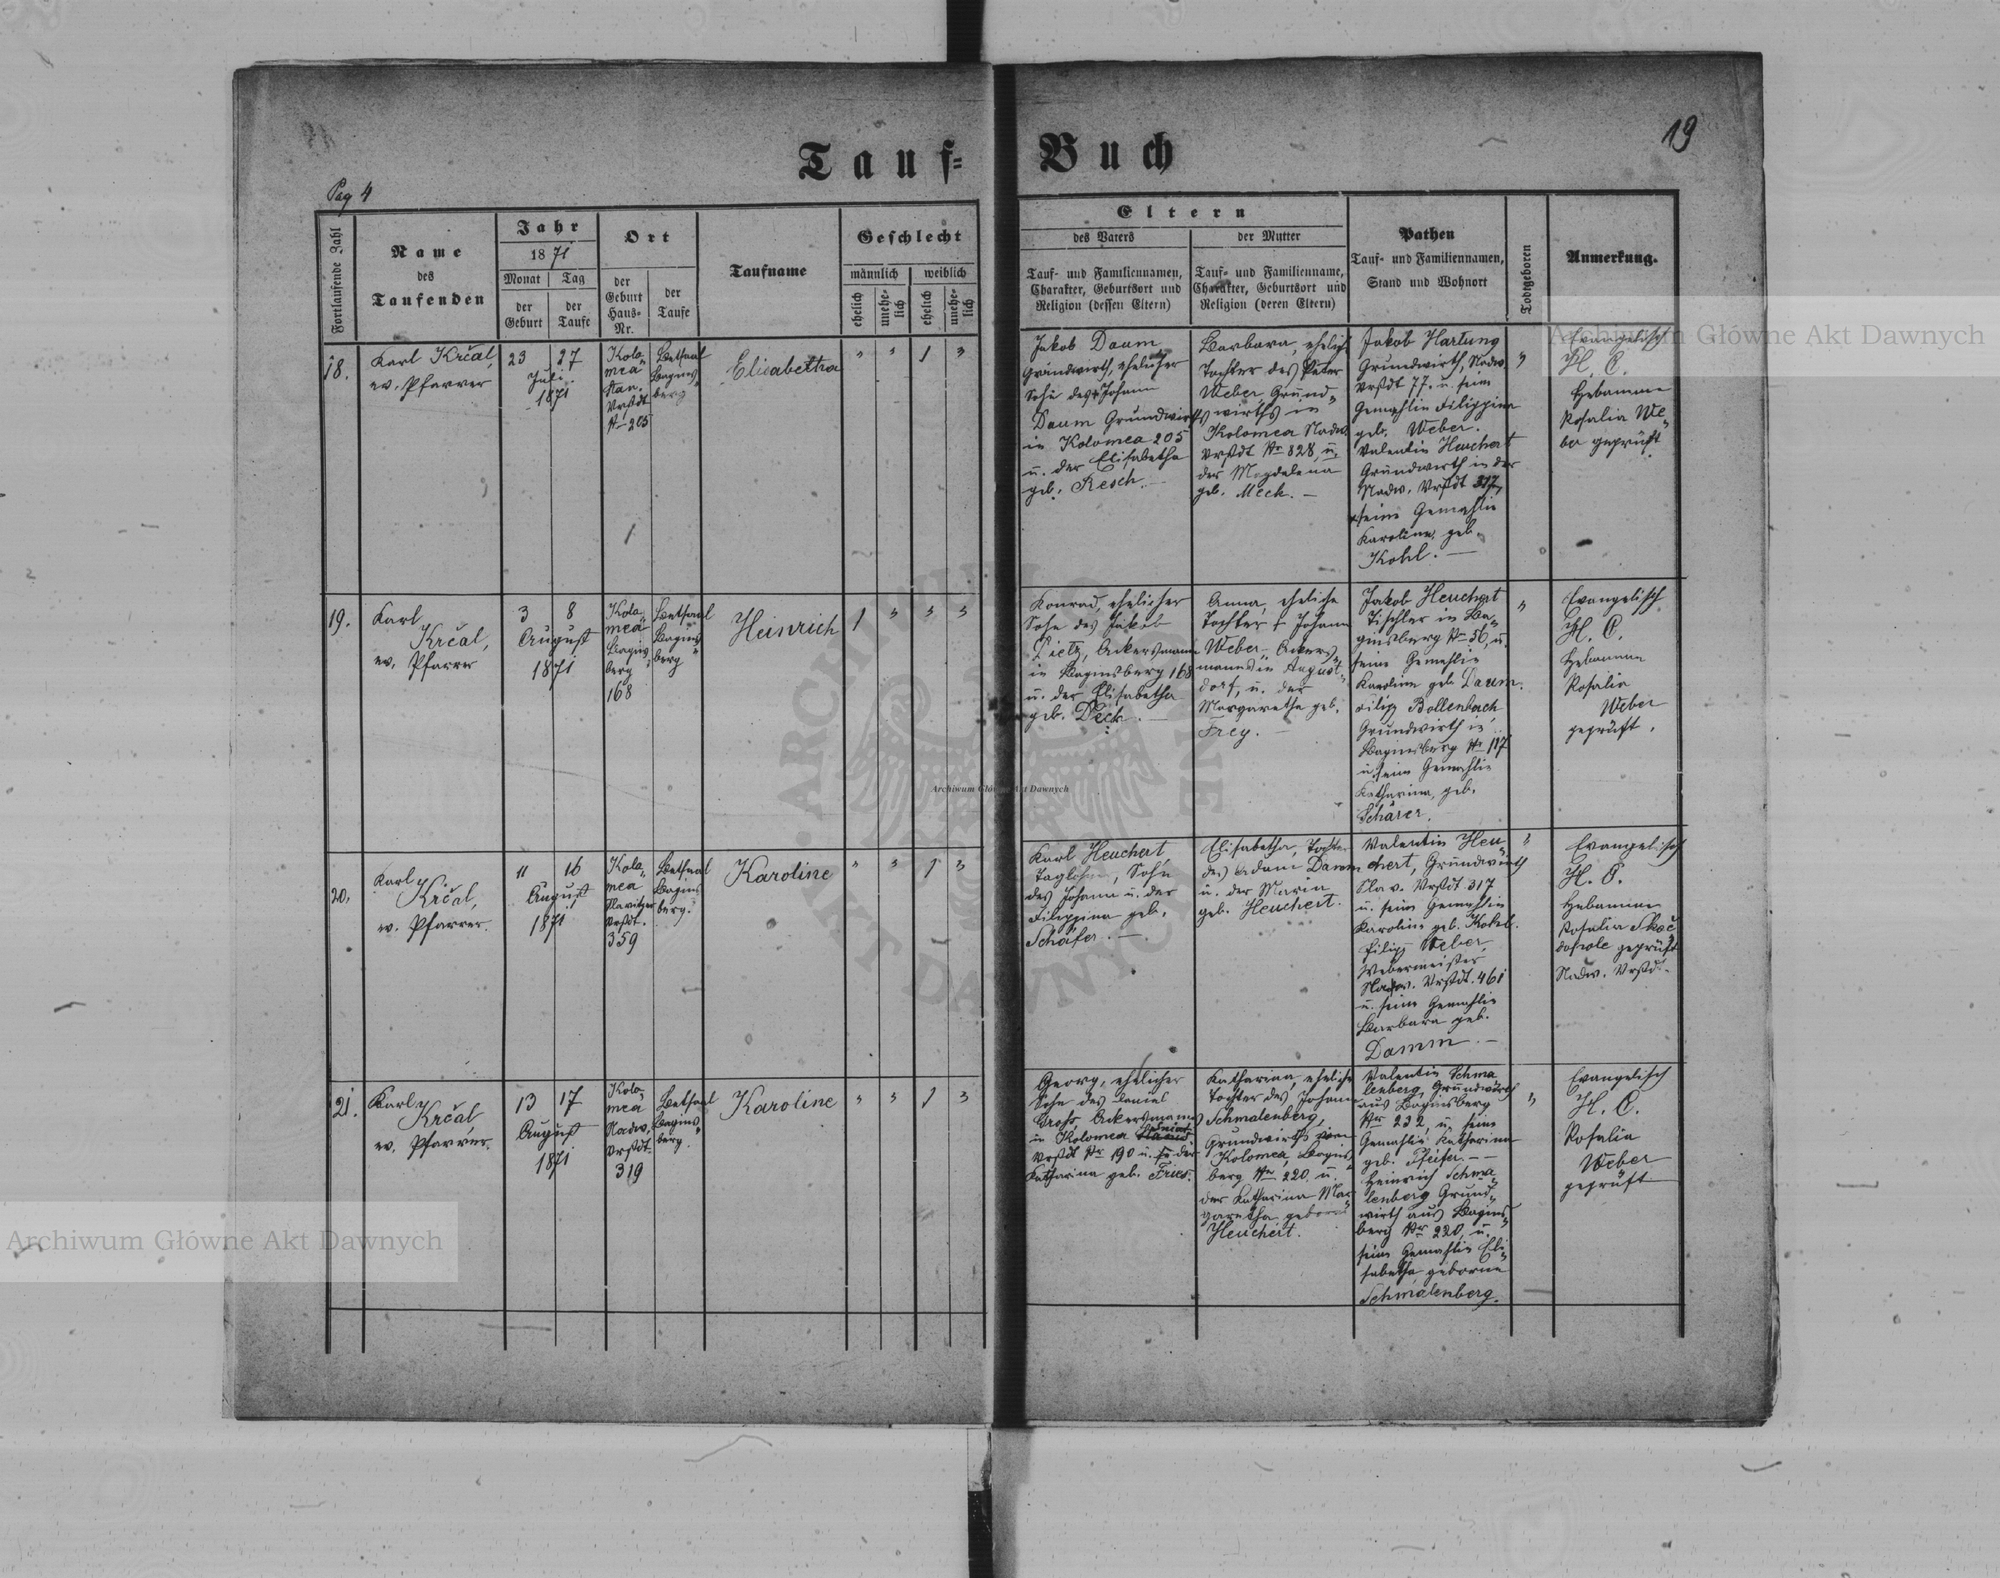 Tauf=Buch
19
Pag 4
Fortlaufende Zahl
Name
des
Taufenden
Jahr
1871
Monat
Tag
der
Geburt
der
Taufe
Ort
der
Geburt
Haus=
Nr.
der
Taufe
Taufname
Geschlecht
männlich
weiblich
ehelich
unehe=
lich
ehelich
unehe=
lich
Eltern
des Vaters
der Mutter
Tauf= und Familiennamen,
Charakter, Geburtsort und
Religion (dessen Eltern)
Tauf= und Familienname,
Charakter, Geburtsort und
Religion (deren Eltern)
Pathen
Tauf= und Familiennamen,
Stand und Wohnort
Todtgeboren
Anmerkung.
18.
Karl Krčal,
ev. Pfarrer
23 27
Juli
1871
Kolo„
mea
Vrstdt
Nr 205
Betsaal
Bagins„
berg
Elisabetha
" " 1 "
Jakob Daum
Grundwirth, ehelicher
Sohn des Johann
Daum Grundwirths
in Kolomea 205
u. der Elisabetha
geb. Resch. —
Barbara, ehelich
Tochter des Peter
Weber, Grund„
wirths in
Kolomea Nadw.
Vrstdt Nr 828, u.
der Magdalena
geb. Meck. —
Jakob Hartung
Grundwirth, Nadw.
Vrstdt 77. u. seine
Gemahlin Filippina
geb. Weber.
Valentin Heuchert
Grundwirth in der
Nadw. Vrstdt 317,
seine Gemahlin
Karoline, geb.
Kohl. —
"
Evangelisch
H. C.
Hebamme
Rosalia We„
ber geprüft
19.
Karl
Krčal,
ev. Pfarrer
3 8
August
1871
Kolo„
mea
Bagins„
berg
168
Betsaal
Bagins„
berg
Heinrich
1 " " "
Konrad, ehelicher
Sohn des Jakob
Dietz, Ackersmann
in Baginsberg 168
u. der Elisabetha
geb. Deck. —
Anna, eheliche
Tochter d Johann
Weber, Ackers„
mannes in August„
dorf, u. der
Margaretha geb.
Frey. —
Jakob Heuchert
Tischler in Ba„
ginsberg Nr 56, u.
seine Gemahlin
Karoline geb. Daum.
Filip Bollenbach
Grundwirth in
Baginsberg Nr 117
u. seine Gemahlin
Katharina, geb.
Schärer.
"
Evangelisch
H. C.
Hebamme
Rosalia
Weber
geprüft.
20.
Karl
Krčal,
ev. Pfarrer.
11 16
August
1871
Kolo„
mea
Vrstdt.
359
Betsaal
Bagins„
berg.
Karoline
" " 1 "
Karl Heuchert,
Taglöhner, Sohn
des Johann u. der
Filippina geb.
Schäfer. —
Elisabetha, Tochter
des Adam Damm
u. der Maria
geb. Heuchert.
Valentin Heu„
chert, Grundwirth
Vrstdt 317
u. seine Gemahlin
Karoline geb. Kohl.
Filipp Weber,
Webermeister
Nadw. Vrstdt. 461
u. seine Gemahlin
Barbara geb.
Damm. —
"
Evangelisch
H. C.
Hebamme
Rosalia
geprüft
Nadw. Vrstdt.
21.
Karl
Krčal,
ev. Pfarrer.
13 17
August
1871
Kolo„
mea
Nadw.
Vrstdt.
319
Betsaal
Bagins„
berg.
Karoline
" " 1 "
Georg, ehelicher
Sohn des Daniel
Gross, Ackersmanns
in Kolomea
Vrstdt Nr 190 u. der
Katharina geb. Fries.
Katharina, eheliche
Tochter des Johann
Schmalenberg,
Grundwirths von
Kolomea, Bagins„
berg Nr 220 u.
der Katharina Mar„
garetha geborne
Heuchert.
Valentin Schma
lenberg, Grundwirth
aus Baginsberg
Nr 232, u. seine
Gemahlin Katharina
geb. Pfeifer. —
Heinrich Schma„
lenberg Grund„
wirth aus Bagins„
berg Nr 220, u.
seine Gemahlin Eli„
sabetha geborne
Schmalenberg.
"
Evangelisch
H. C.
Rosalia
Weber
geprüft
Archiwum Główne Akt Dawnych
Archiwum Główne Akt Dawnych
Archiwum Główne Akt Dawnych